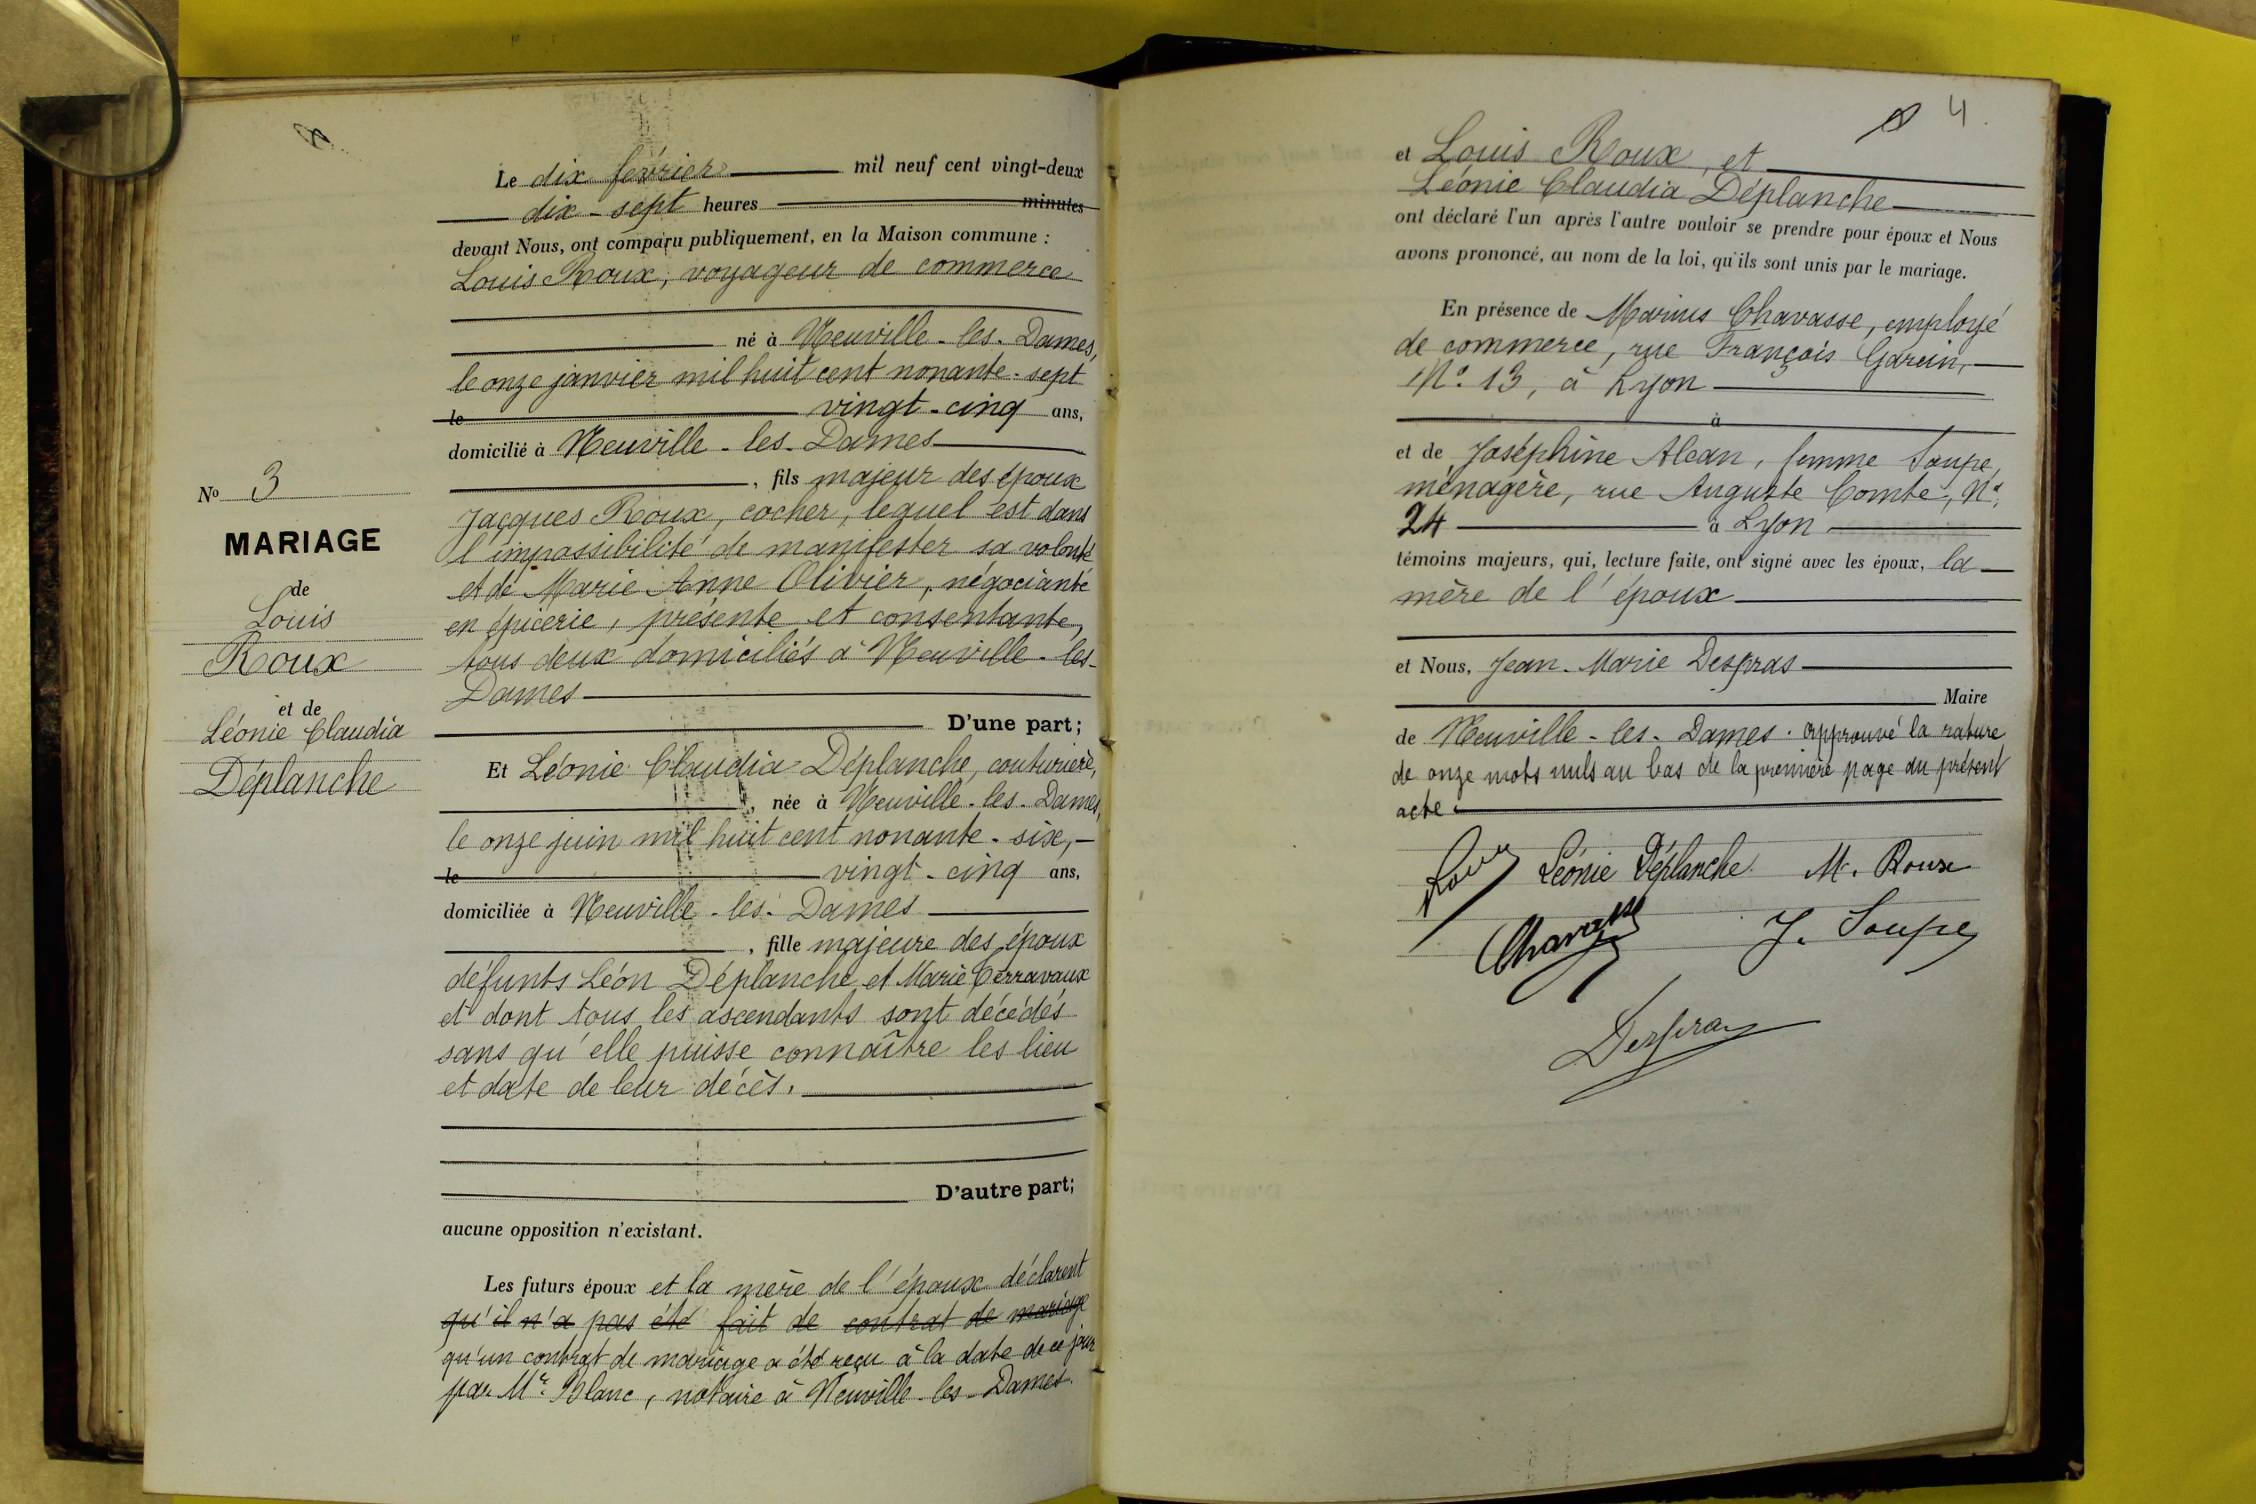 Le dix février mil neuf cent vingt-deux
dix-sept heures minutes
devant Nous, ont comparu publiquement, en la Maison commune :
Louis Roux, voyageur de commerce
né à Neuville-les-Dames,
le onze janvier mil huit cent nonante-sept
le vingt-cinq ans,
domicilié à Neuville-les-Dames
, fils majeur des époux
Jacques Roux, cocher, lequel est dans
l'impossibilité de manifester sa volonté
et de Marie Anne Olivier, négociante
en épicerie, présente et consentante,
tous deux domiciliés à Neuville-les-
Dames
D'une part;
Et Léonie Claudia Déplanche, couturière,
, née à Neuville-les-Dames,
le onze juin mil huit cent nonante-six,
le vingt-cinq ans,
domiciliée à Neuville-les-Dames
, fille majeure des époux
défunts Léon Déplanche et Marie Cerravaux
et dont tous les ascendants sont décédés
sans qu'elle puisse connaître les lieu
et date de leur décès.
D'autre part;
aucune opposition n'existant.
Les futurs époux et la mère de l'époux déclarent
qu'il n'a pas été fait de contrat de mariage
qu'un contrat de mariage a été reçu à la date de ce jour
par Me. Blanc, notaire à Neuville-les-Dames.
No 3
MARIAGE
de
Louis
Roux
et de
Léonie Claudia
Déplanche
4
et Louis Roux, et
Léonie Claudia Déplanche
ont déclaré l'un après l'autre vouloir se prendre pour époux et Nous
avons prononcé, au nom de la loi, qu'ils sont unis par le mariage.
En présence de Marius Chavasse, employé
de commerce, rue François Garcin,
No. 13, à Lyon
à
et de Joséphine Alean, femme Soupe,
ménagère, rue Auguste Comte, No.
24 à Lyon
témoins majeurs, qui, lecture faite, ont signé avec les époux, la
mère de l'époux
et Nous, Jean-Marie Despras
Maire
de Neuville-les-Dames. Approuvé la rature
de onze mots nuls au bas de la première page du présent
acte.
Roux Léonie Déplanche M. Roux
Chavasse J. Soupe
Despras